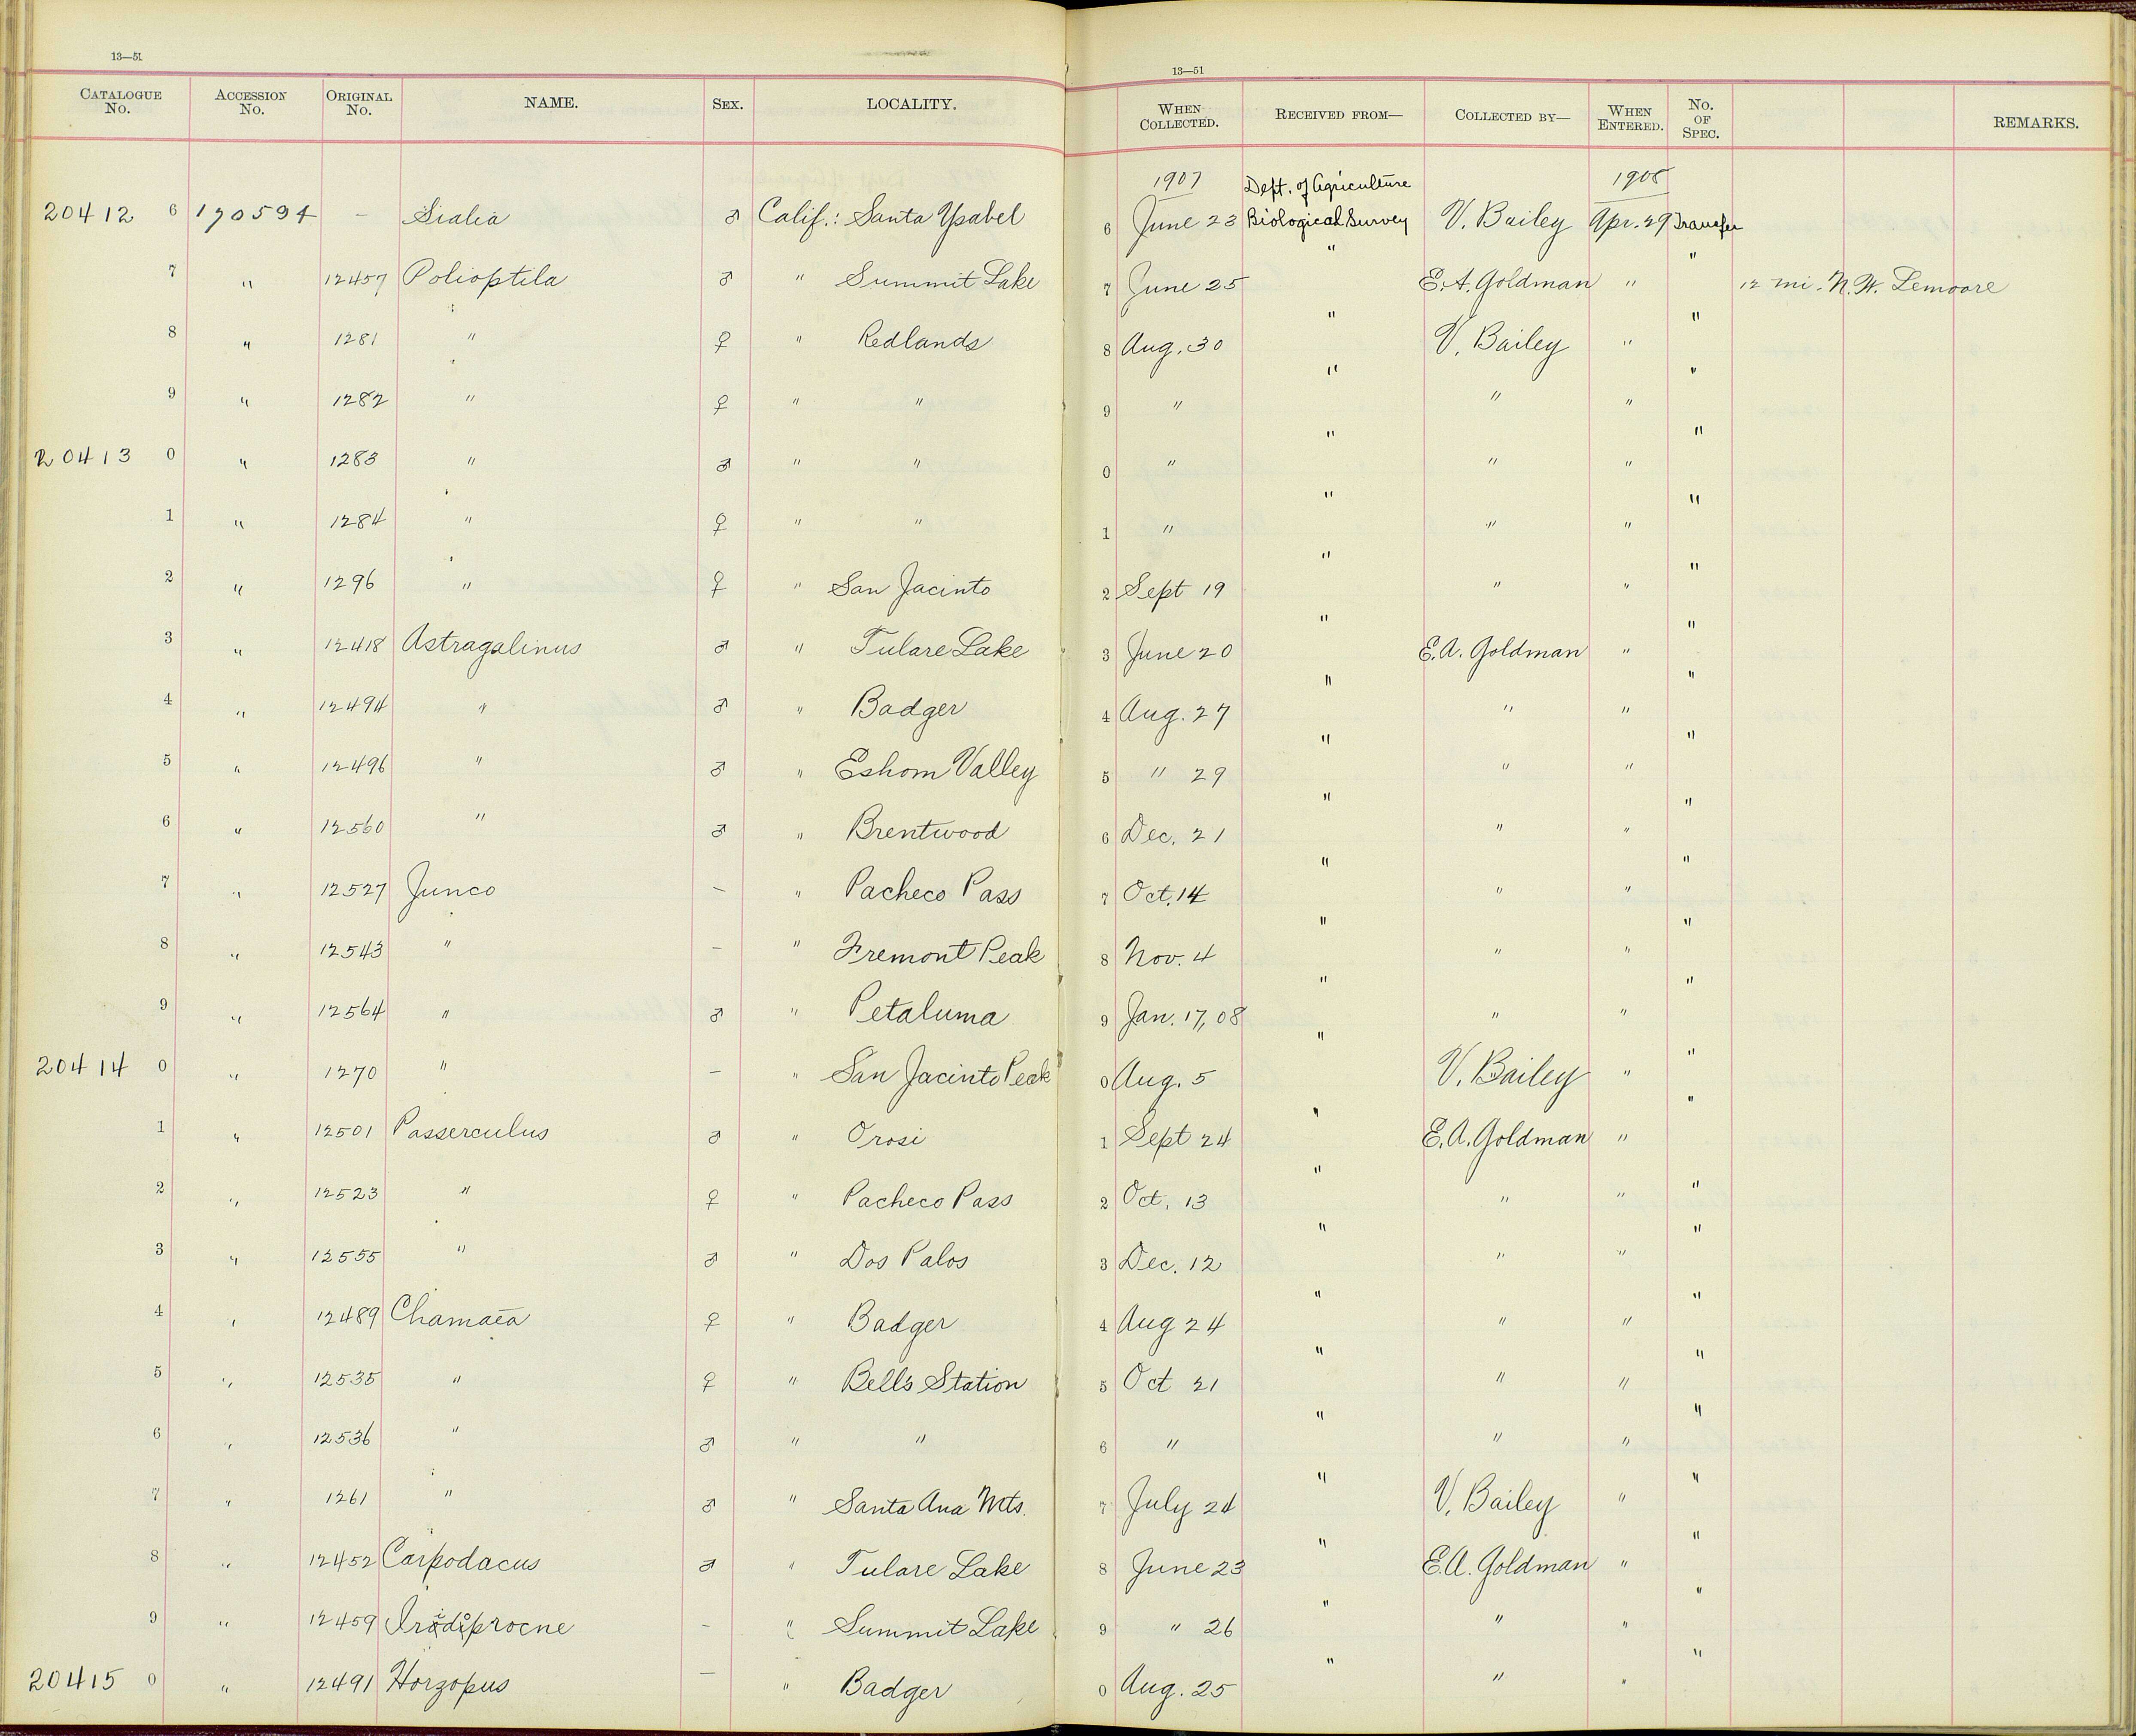 13—51
CATALOGUE No. ACCESSION No. ORIGINAL No. NAME. SEX. LOCALITY.
13—51
WHEN COLLECTED. RECEIVED FROM— COLLECTED BY— WHEN ENTERED. No. OF SPEC. REMARKS.
1907 Dept. of Agriculture 1908
20412 6 190594 – Sialia ♂ Calif.: Santa Ysabel 6 June 23 Biological Survey V. Bailey Apr. 29 Transfer
7 " 12457 Polioptila ♂ " Summit Lake 7 June 25 " E.A. Goldman " " 12 mi. N.W. Lemoore
8 " 1281 " ♀ " Redlands 8 Aug. 30 " V. Bailey " "
9 " 1282 " ♀ " " 9 " " " " "
20413 0 " 1283 " ♂ " " 0 " " " " "
1 " 1284 " ♀ " " 1 " " " " "
2 " 1296 " ♀ " San Jacinto 2 Sept 19 " " " "
3 " 12418 Astragalinus ♂ " Tulare Lake 3 June 20 " E.A. Goldman " "
4 " 12494 " ♂ " Badger 4 Aug. 27 " " " "
5 " 12496 " ♂ " Eshom Valley 5 " 29 " " " "
6 " 12560 " ♂ " Brentwood 6 Dec. 21 " " " "
7 " 12527 Junco – " Pacheco Pass 7 Oct. 14 " " " "
8 " 12543 " – " Fremont Peak 8 Nov. 4 " " " "
9 " 12564 " ♂ " Petaluma 9 Jan. 17, 08 " " " "
20414 0 " 1270 " – " San Jacinto Peak 0 Aug. 5 " V. Bailey " "
1 " 12501 Passerculus ♂ " Orosi 1 Sept 24 " E.A. Goldman " "
2 " 12523 " ♀ " Pacheco Pass 2 Oct. 13 " " " "
3 " 12555 " ♂ " Dos Palos 3 Dec. 12 " " " "
4 " 12489 Chamaea ♀ " Badger 4 Aug 24 " " " "
5 " 12535 " ♀ " Bells Station 5 Oct 21 " " " "
6 " 12536 " ♂ " " 6 " " " " "
7 " 1261 " ♂ " Santa Ana Mts. 7 July 24 " V. Bailey " "
8 " 12452 Carpodacus ♂ " Tulare Lake 8 June 23 " E.A. Goldman " "
9 " 12459 Iridoprocne – " Summit Lake 9 " 26 " " " "
20415 0 " 12491 Horzopus – " Badger 0 Aug. 25 " " " "